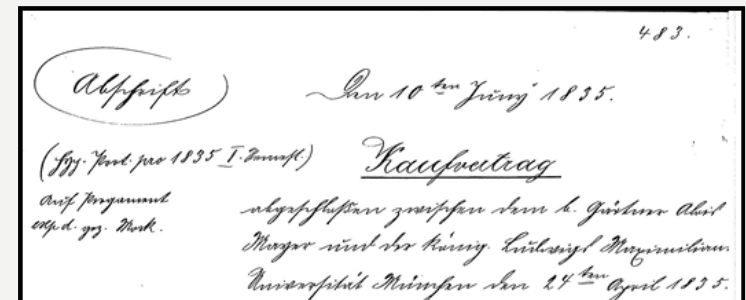 483.
Abschrift
Den 10ten Juny 1835.
(Hyp. Prot. pro 1835 I. Semest.)
Kaufvertrag
auf Pergament
abgeschlossen zwischen dem b. Gärtner Alois
exp. d. gez. Mock.
Mayer und der König. Ludwigs Maximilian
Universität München den 24ten April 1835.